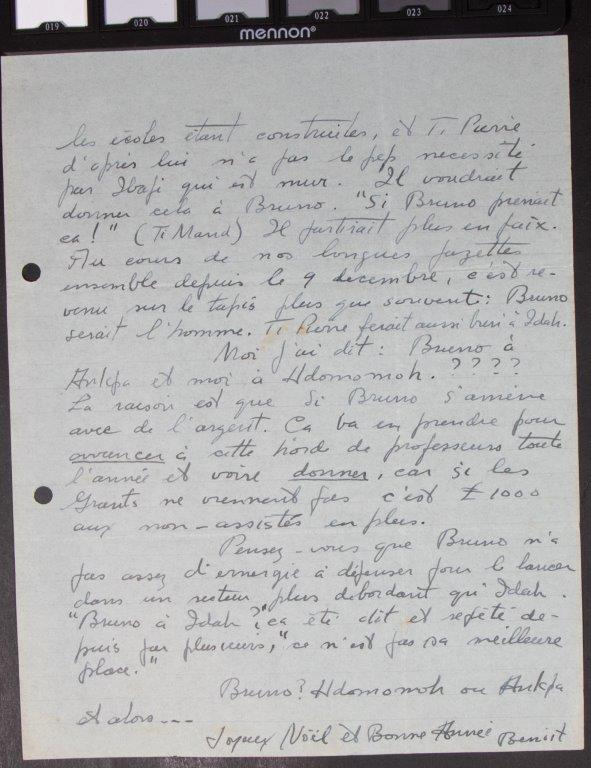 019 020 021 022 023 024
mennon®
les écoles étant construites, et Ti Pierre
d'après lui n'a pas le pep necessité
par Ibaji qui est mur. Il voudrait
donner cela à Bruno. "Si Bruno prenait
ca!" (Ti Maud) Il partirait plus en paix.
Au cours de nos longues jazettes
ensemble depuis le 9 decembre, c'est re-
venu sur le tapis plus que souvent: Bruno
serait l'homme. Ti Pierre ferait aussi bien à Idah.
Moi j'ai dit: Bruno à
Ankpa et moi à Hdomomoh. ????
La raison est que si Bruno s'amène
avec de l'argent. Ca va en prendre pour
avancer à cette horde de professeurs toute
l'année et voire donner, car si les
Grants ne viennent pas c'est £1000
aux non-assistés en plus.
Pensez-vous que Bruno n'a
pas assez d'energie à dépenser pour le lancer
dans un secteur plus debordant qu'Idah.
"Bruno à Idah", ca été dit et repété de-
puis par plusieurs, "ce n'est pas sa meilleure
place."
Bruno? Hdomomoh ou Ankpa
et alors---
Joyeux Noël et Bonne Année Benoit